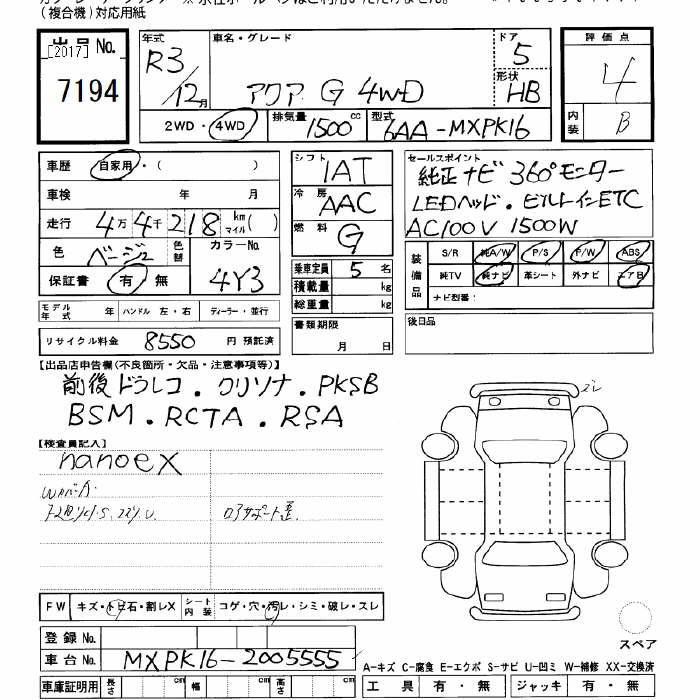 (複合機)対応用紙
出品No.
[2017]
7194
年式
R3/12月
車名・グレード
アクア G 4WD
ドア
5
形状
HB
評価点
4
内装
B
2WD・4WD
排気量 1500cc
型式 6AA-MXPK16
車歴 自家用・( )
車検 年 月
走行 4万4千218km マイル( )
色 ベージュ 色替 カラーNo. 4Y3
保証書 有・無
モデル年式 年 ハンドル 左・右 ディーラー・並行
リサイクル料金 8550 円 預託済
シフト IAT
冷房 AAC
燃料 G
乗車定員 5名
積載量 kg
総重量 kg
書類期限
月 日
セールスポイント
純正ナビ 360°モニター
LEDヘッド・ビルトインETC
AC100V 1500W
装備品
S/R 純A/W P/S P/W ABS
純TV 純ナビ 革シート 外ナビ エアB
ナビ型番:
後日品
【出品店申告欄(不良箇所・欠品・注意事項等)】
前後ドラレコ・クリソナ・PKSB
BSM・RCTA・RSA
【検査員記入】
nanoeX
ロアサポート歪
FW キズ・トビ石・割レX シート内装 コゲ・穴・汚レ・シミ・破レ・スレ
登録No.
車台No. MXPK16-2005555
車庫証明用 長さ cm 幅 cm 高さ cm
スペア
A-キズ C-腐食 E-エクボ S-サビ U-凹ミ W-補修 XX-交換済
工具 有・無 ジャッキ 有・無